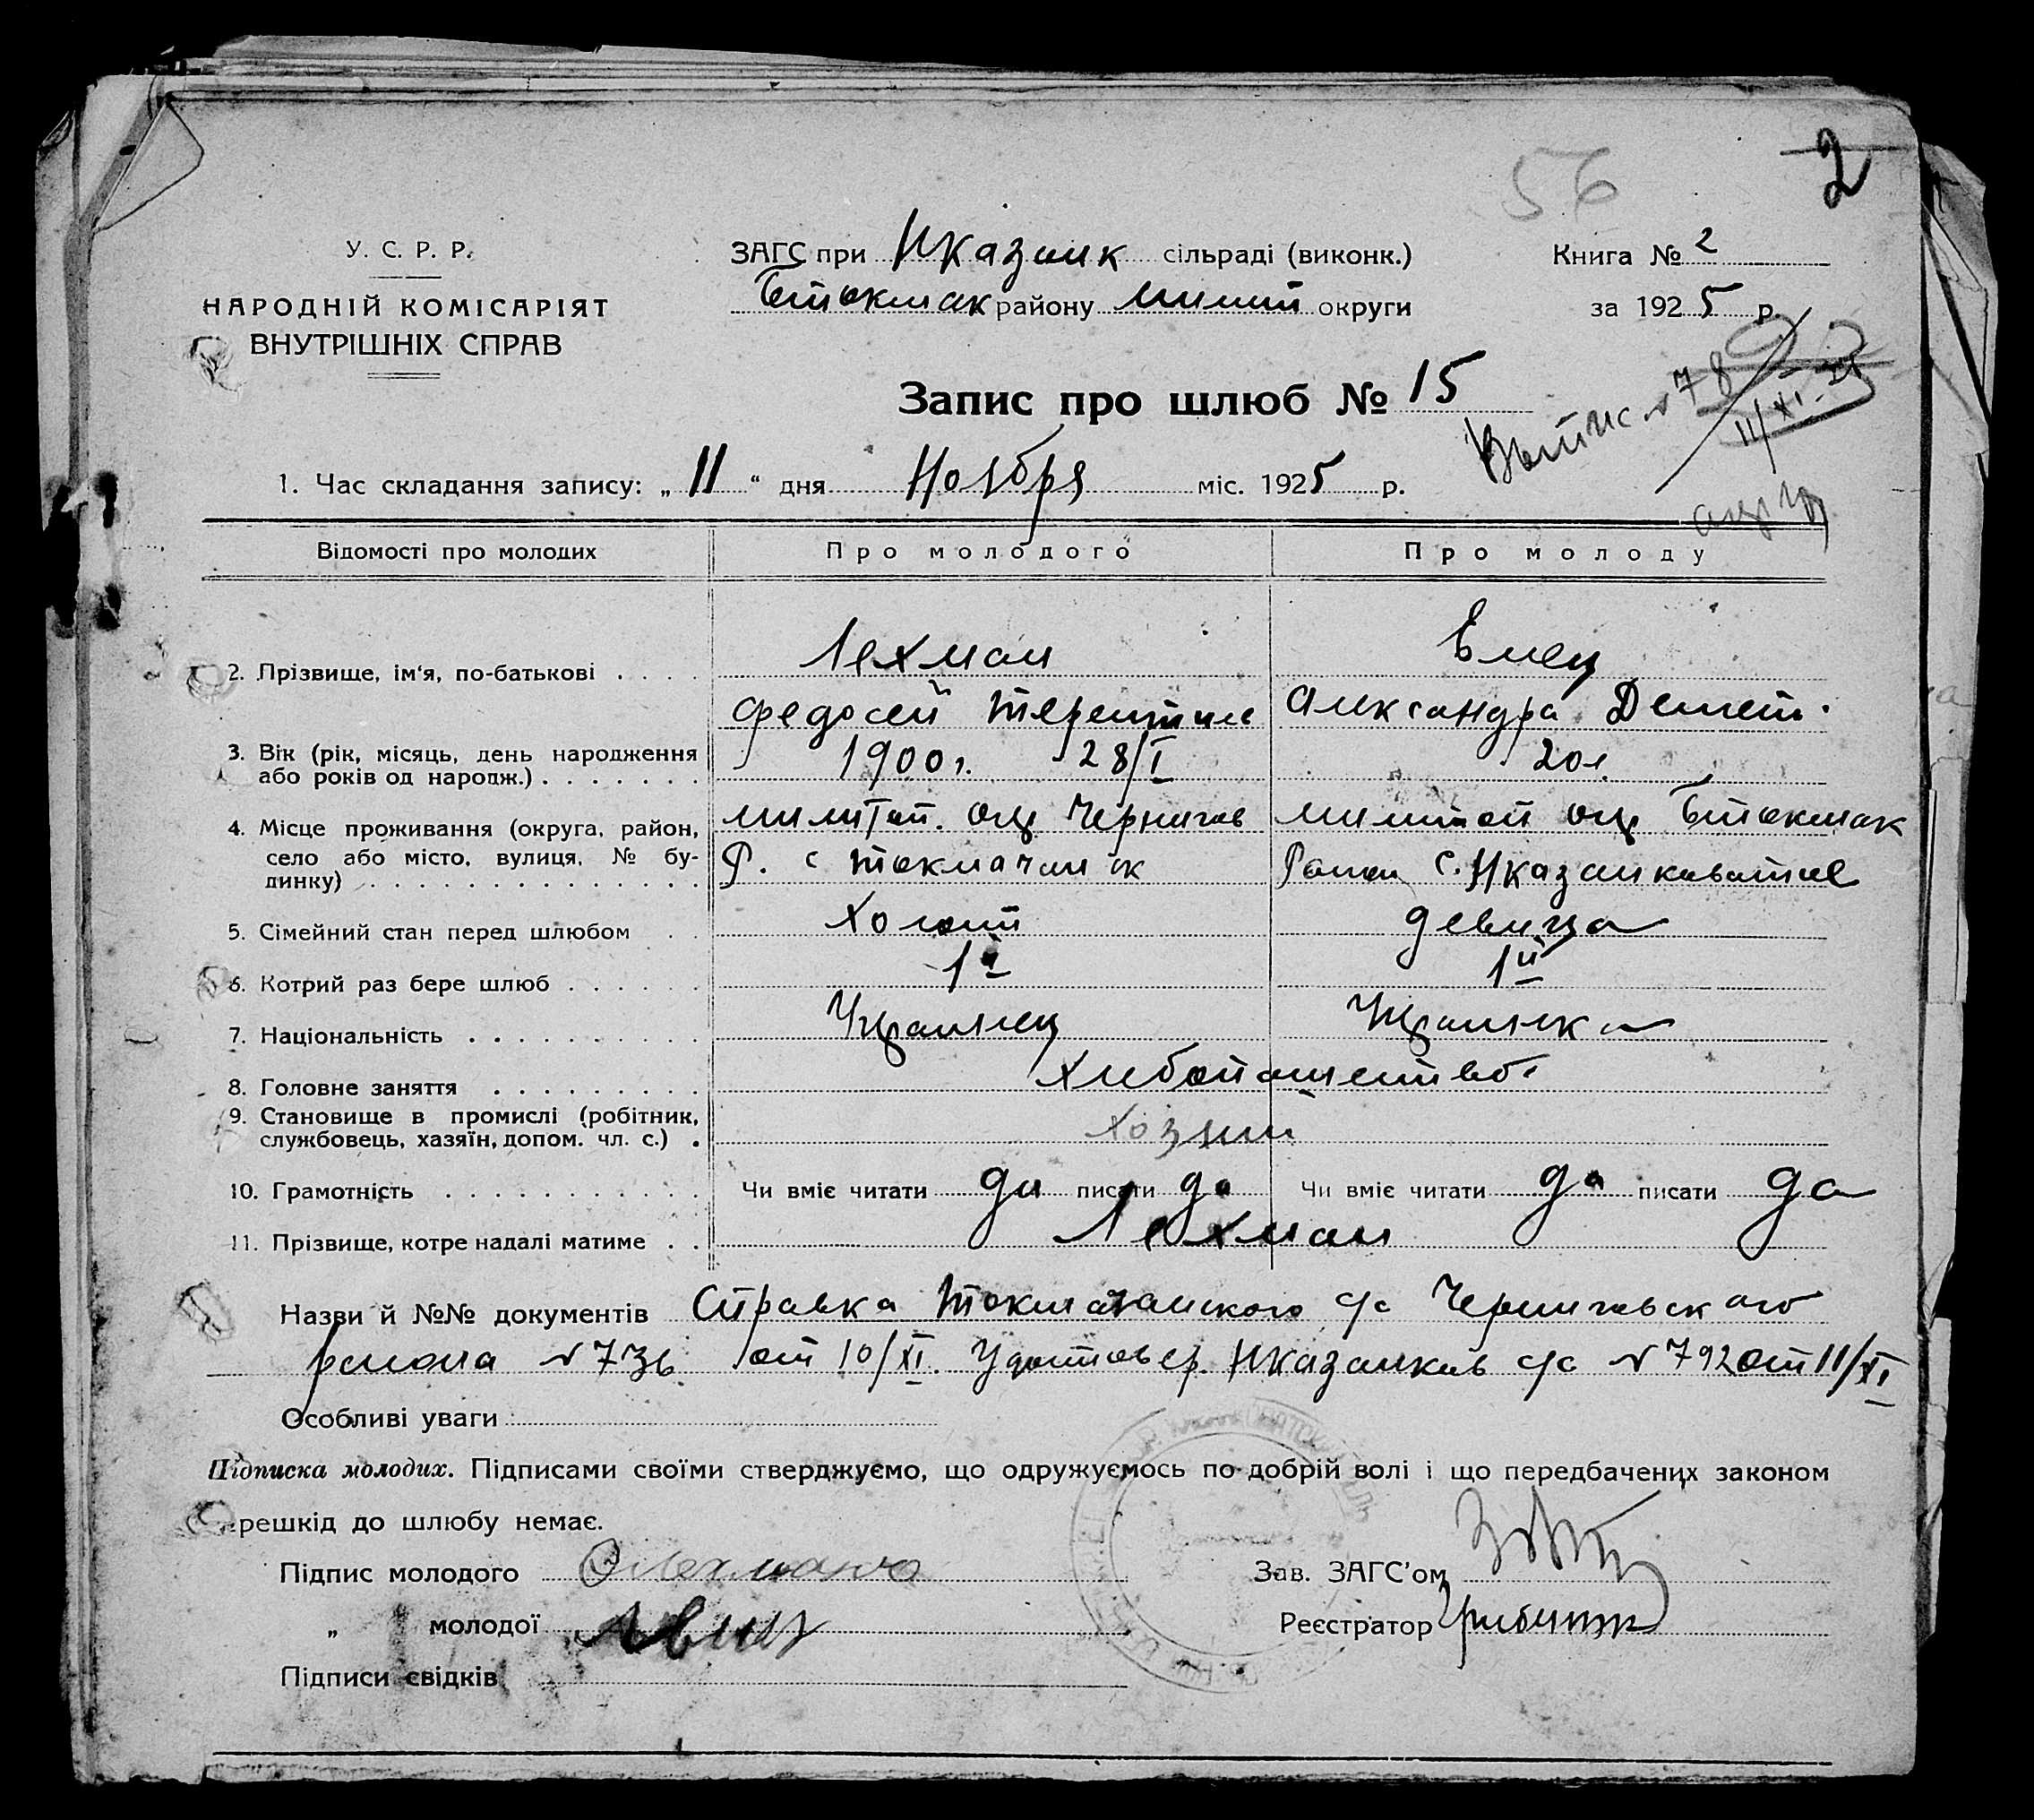 2
56
У. С. Р. Р.
НАРОДНІЙ КОМІСАРІЯТ
ВНУТРІШНІХ СПРАВ
ЗАГС при Нказанк сільраді (виконк.)
Бтокмак району Мелит округи
Книга № 2
за 1925 р.
Запис про шлюб № 15
Выпис № 78
11/XI-25
1. Час складання запису: „ 11 “ дня Ноября міс. 1925 р.
Відомості про молодих
Про молодого
Про молоду
2. Прізвище, ім'я, по-батькові
Лехман
Федосей Терентиев
Емец
Александра Демент.
3. Вік (рік, місяць, день народження
або років од народж.)
1900 г. 28/I
20 л.
4. Місце проживання (округа, район,
село або місто, вулиця, № бу-
динку)
Мелитоп. окр Чернигов
Р. с Токмачанск
Мелитоп окр Бтокмак
Район с. Нказанковатое
5. Сімейний стан перед шлюбом
Холост
девица
6. Котрий раз бере шлюб
1й
1й
7. Національність
Украинец
Украинка
8. Головне заняття
Хлебопашество
9. Становище в промислі (робітник,
службовець, хазяїн, допом. чл. с.)
Хозяин
10. Грамотність
Чи вміє читати да писати да
Чи вміє читати да писати да
11. Прізвище, котре надалі матиме
Лехман
Назви й №№ документів Справка Токмачанского с/с Черниговского
района № 736 от 10/XI. Удостовер. Нказанков с/с № 792 от 11/XI
Особливі уваги
Підписка молодих. Підписами своїми стверджуємо, що одружуємось по добрій волі і що передбачених законом
перешкід до шлюбу немає.
Підпис молодого
„ молодої
Підписи свідків
Зав. ЗАГС'ом
Реєстратор